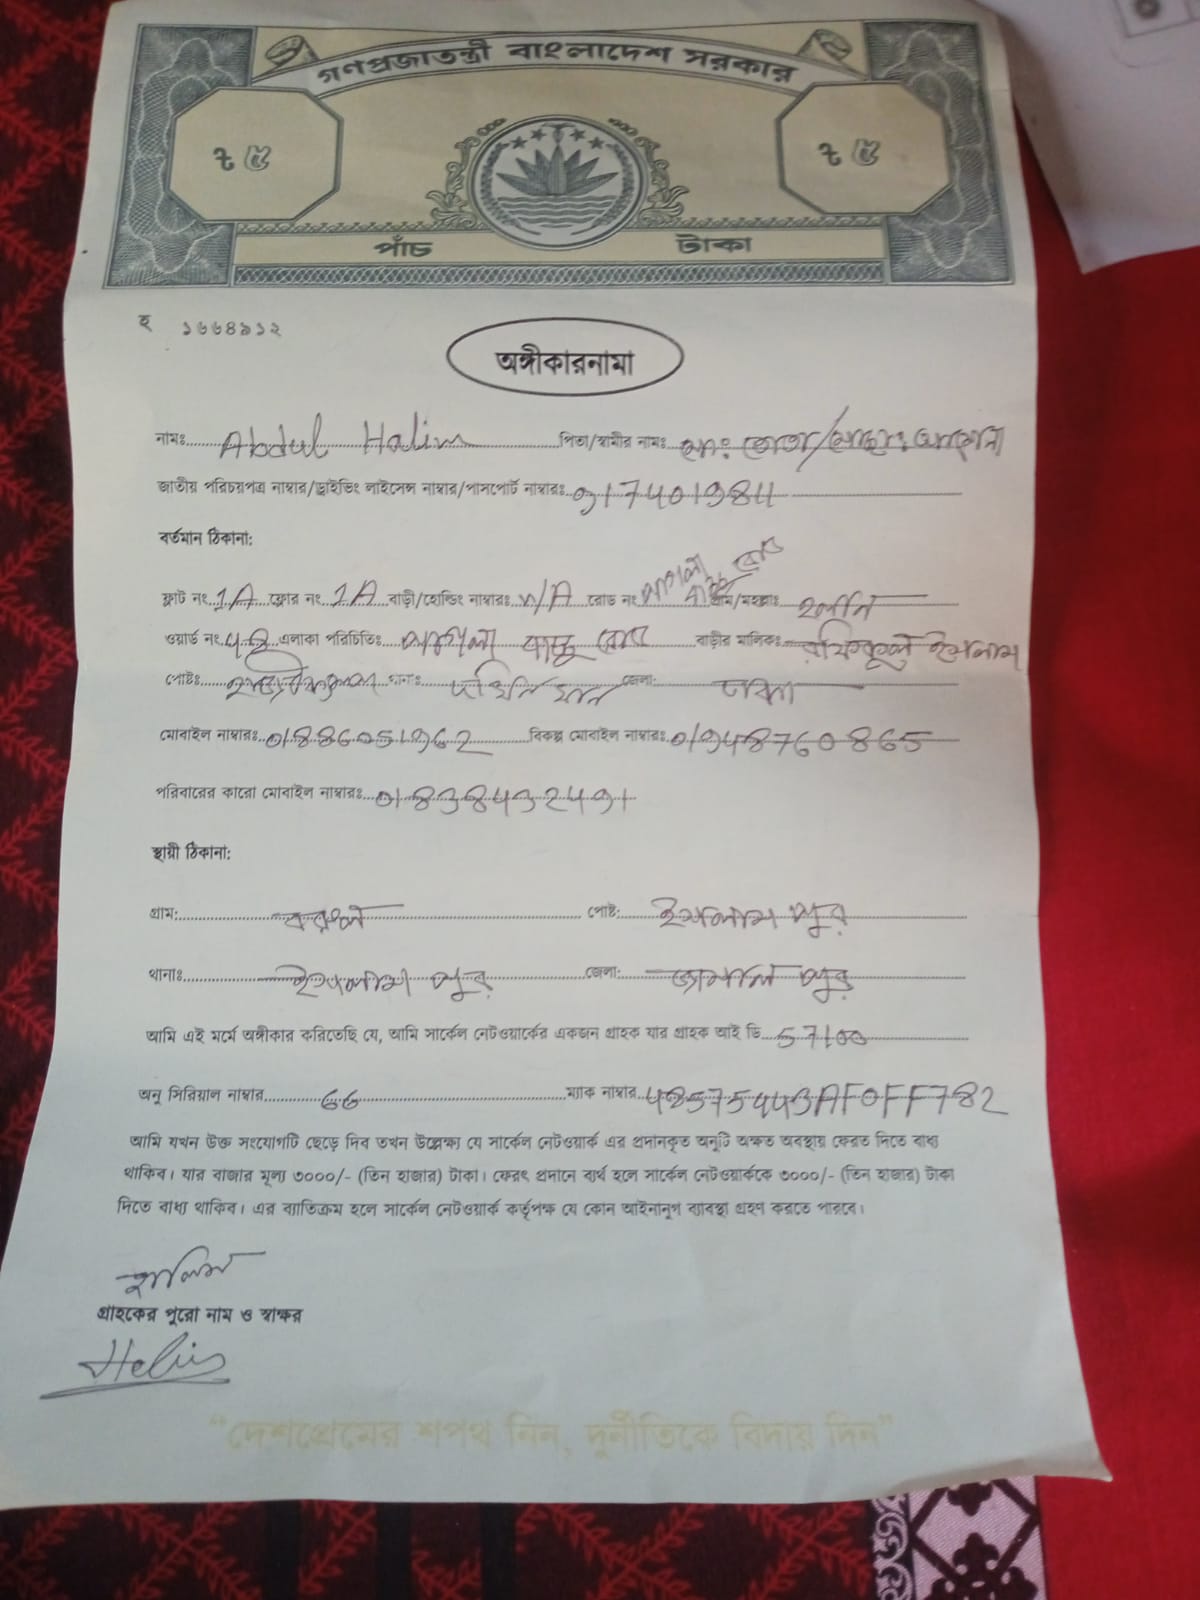 গণপ্রজাতন্ত্রী বাংলাদেশ সরকার
৳ ৫ ৳ ৫
পাঁচ টাকা
হ ১৬৬৪৯১২
অঙ্গীকারনামা
নামঃ Abdul Halim পিতা/স্বামীর নামঃ
জাতীয় পরিচয়পত্র নাম্বার/ড্রাইভিং লাইসেন্স নাম্বার/পাসপোর্ট নাম্বারঃ
বর্তমান ঠিকানা:
ফ্লাট নং 1A ফ্লোর নং 1A বাড়ী/হোল্ডিং নাম্বারঃ N/A রোড নং গ্রাম/মহল্লাঃ
ওয়ার্ড নং এলাকা পরিচিতিঃ রোড বাড়ীর মালিকঃ রফিকুল ইসলাম
পোষ্টঃ থানাঃ জেলা: ঢাকা
মোবাইল নাম্বারঃ 01886051962 বিকল্প মোবাইল নাম্বারঃ 01948760865
পরিবারের কারো মোবাইল নাম্বারঃ
স্থায়ী ঠিকানা:
গ্রাম: পোষ্ট: ইসলাম পুর
থানাঃ ইসলাম পুর জেলা: জামাল পুর
আমি এই মর্মে অঙ্গীকার করিতেছি যে, আমি সার্কেল নেটওয়ার্কের একজন গ্রাহক যার গ্রাহক আই ডি 57100
অনু সিরিয়াল নাম্বার 66 ম্যাক নাম্বার 48575443AF0FF782
আমি যখন উক্ত সংযোগটি ছেড়ে দিব তখন উল্লেক্ষ্য যে সার্কেল নেটওয়ার্ক এর প্রদানকৃত অনুটি অক্ষত অবস্থায় ফেরত দিতে বাধ্য
থাকিব। যার বাজার মূল্য ৩০০০/- (তিন হাজার) টাকা। ফেরৎ প্রদানে ব্যর্থ হলে সার্কেল নেটওয়ার্ককে ৩০০০/- (তিন হাজার) টাকা
দিতে বাধ্য থাকিব। এর ব্যাতিক্রম হলে সার্কেল নেটওয়ার্ক কর্তৃপক্ষ যে কোন আইনানুগ ব্যাবস্থা গ্রহণ করতে পারবে।
হালিম
গ্রাহকের পুরো নাম ও স্বাক্ষর
"দেশপ্রেমের শপথ নিন, দুর্নীতিকে বিদায় দিন"